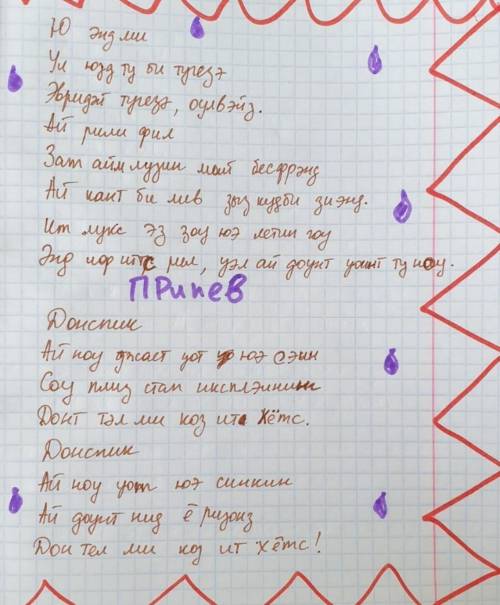 Ю энд ми
Ул юзд ту би тугезэ
Эвридэй тугезэ, оулвэйз.
Ай рили фил
Зат айм лузин май бесфрэнд
Ай кант би лив зыз кудби зиэнд.
Ит лукс эз зоу юэ летин гоу
Энд иф итс рел, уэл ай доунт уант ту ноу.
ПРИПЕВ
Донспик
Ай ноу джаст уот юэ сэин
Соу плиз стап иксплэинин
Донт тэл ми коз ит хётс.
Донспик
Ай ноу уот юэ синкин
Ай доунт нид ё ризонз
Дон тел ми коз ит хётс!